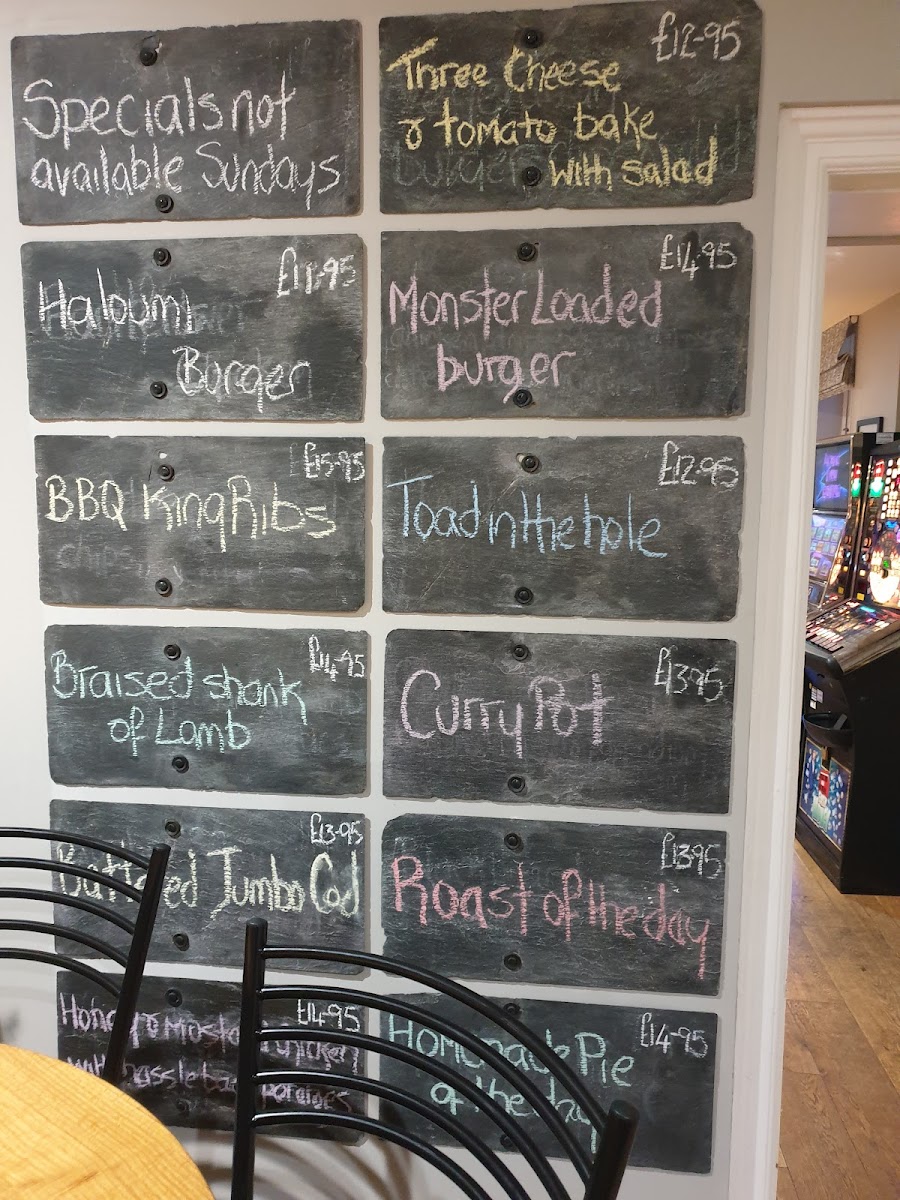 Specials not
available Sundays
£12-95
Three Cheese
& tomato bake
with salad
Haloumi
Burger
£14.95
Monster Loaded
burger
£15-95
BBQ King Ribs
£12-95
Toad in the hole
£14-95
Braised shank
of Lamb
£13-95
Curry Pot
£13-95
Jumbo Cod
£13-95
Roast of the day
£14-95
Honey &
£14-95
Pie
of the day